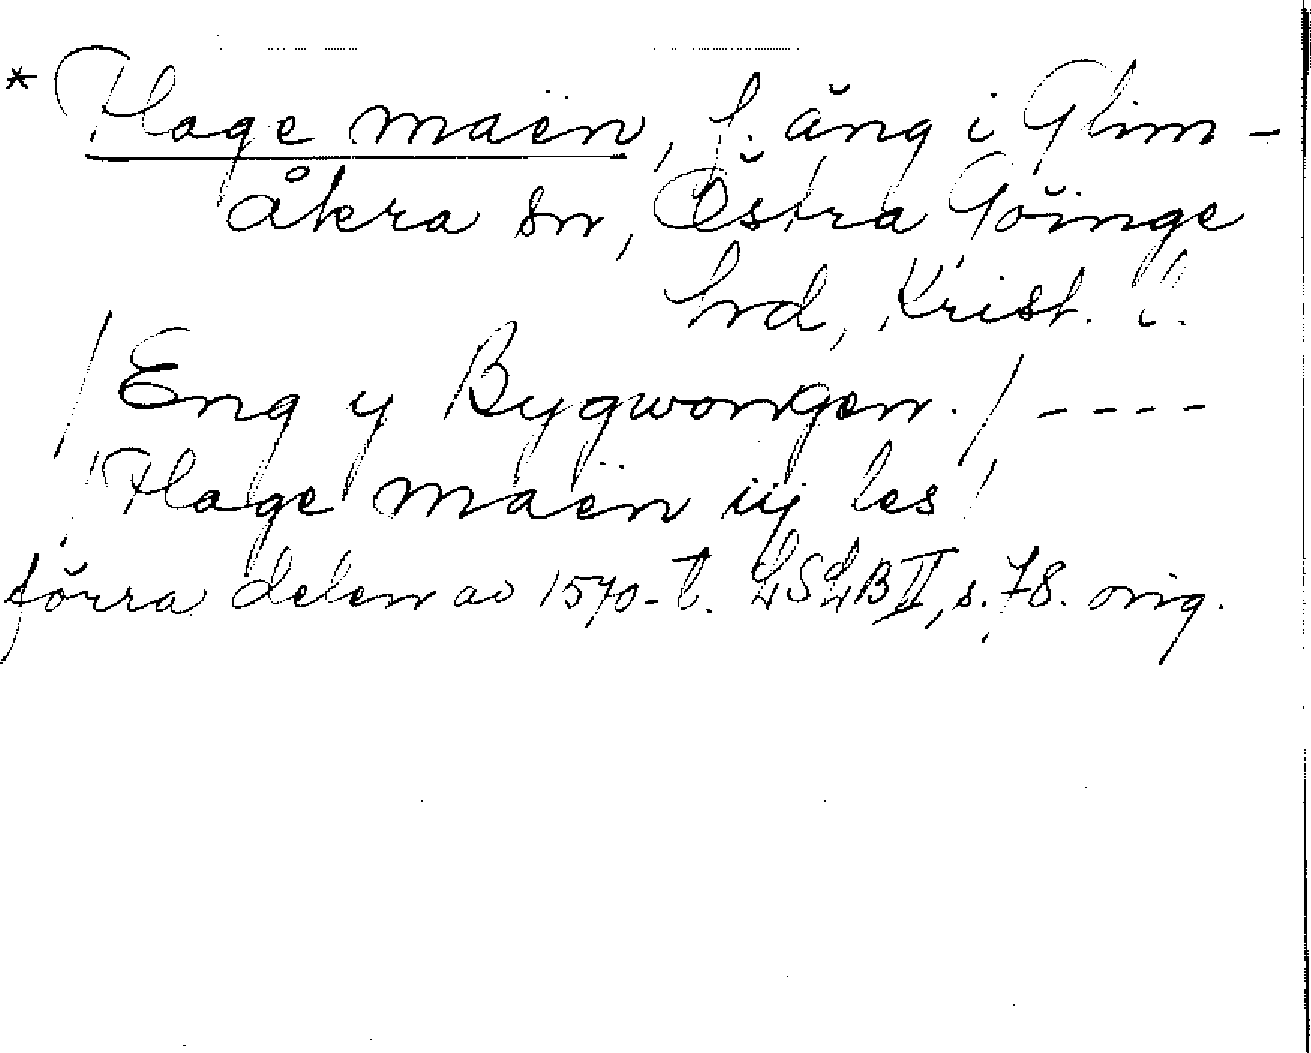 * Hage maën, f. äng i Glim-
åkra sn, Östra Göinge
hrd, Krist. l.
/Eng y Bygwongen./ ----
Hage maën iij les
förra delen av 1570-t. LSLB II, s. 78. orig.